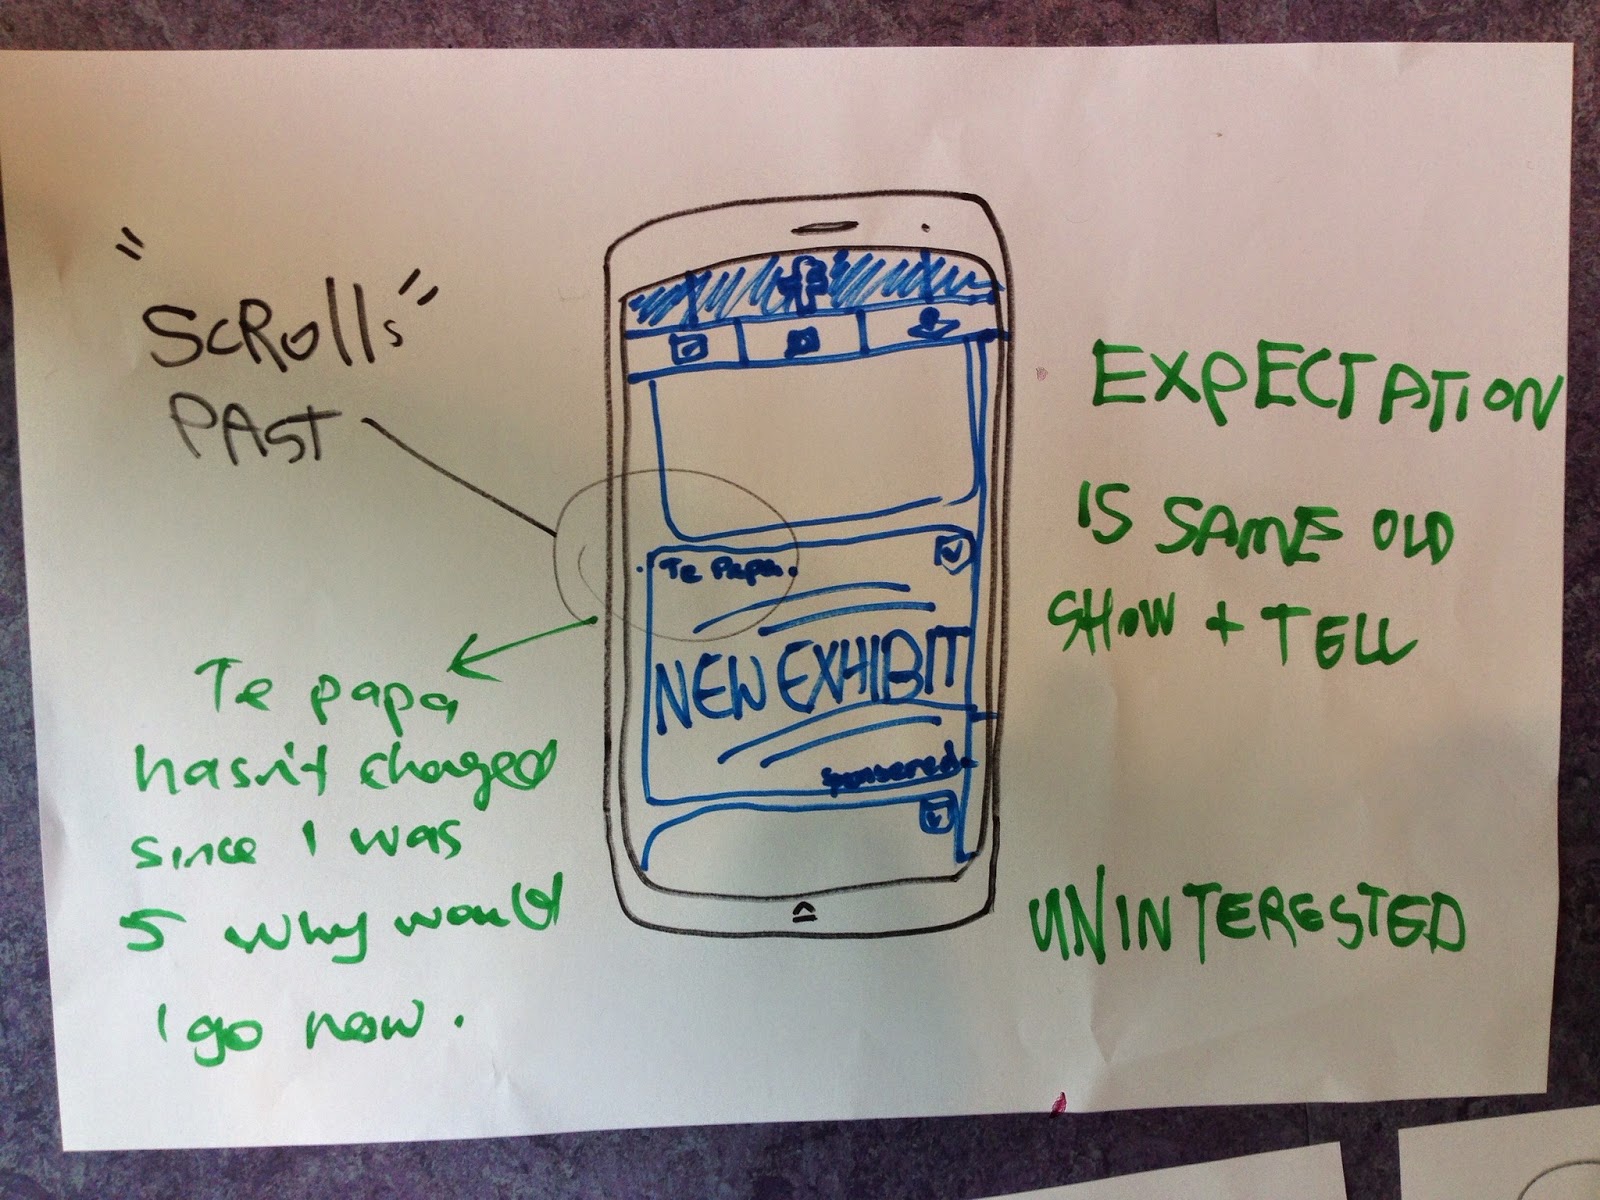 "SCROLLS"
PAST
Te papa
hasn't changed
since I was
5 why would
I go now.
Te Papa.
NEW EXHIBIT
Sponsered.
EXPECTATION
IS SAME OLD
SHOW + TELL
UNINTERESTED